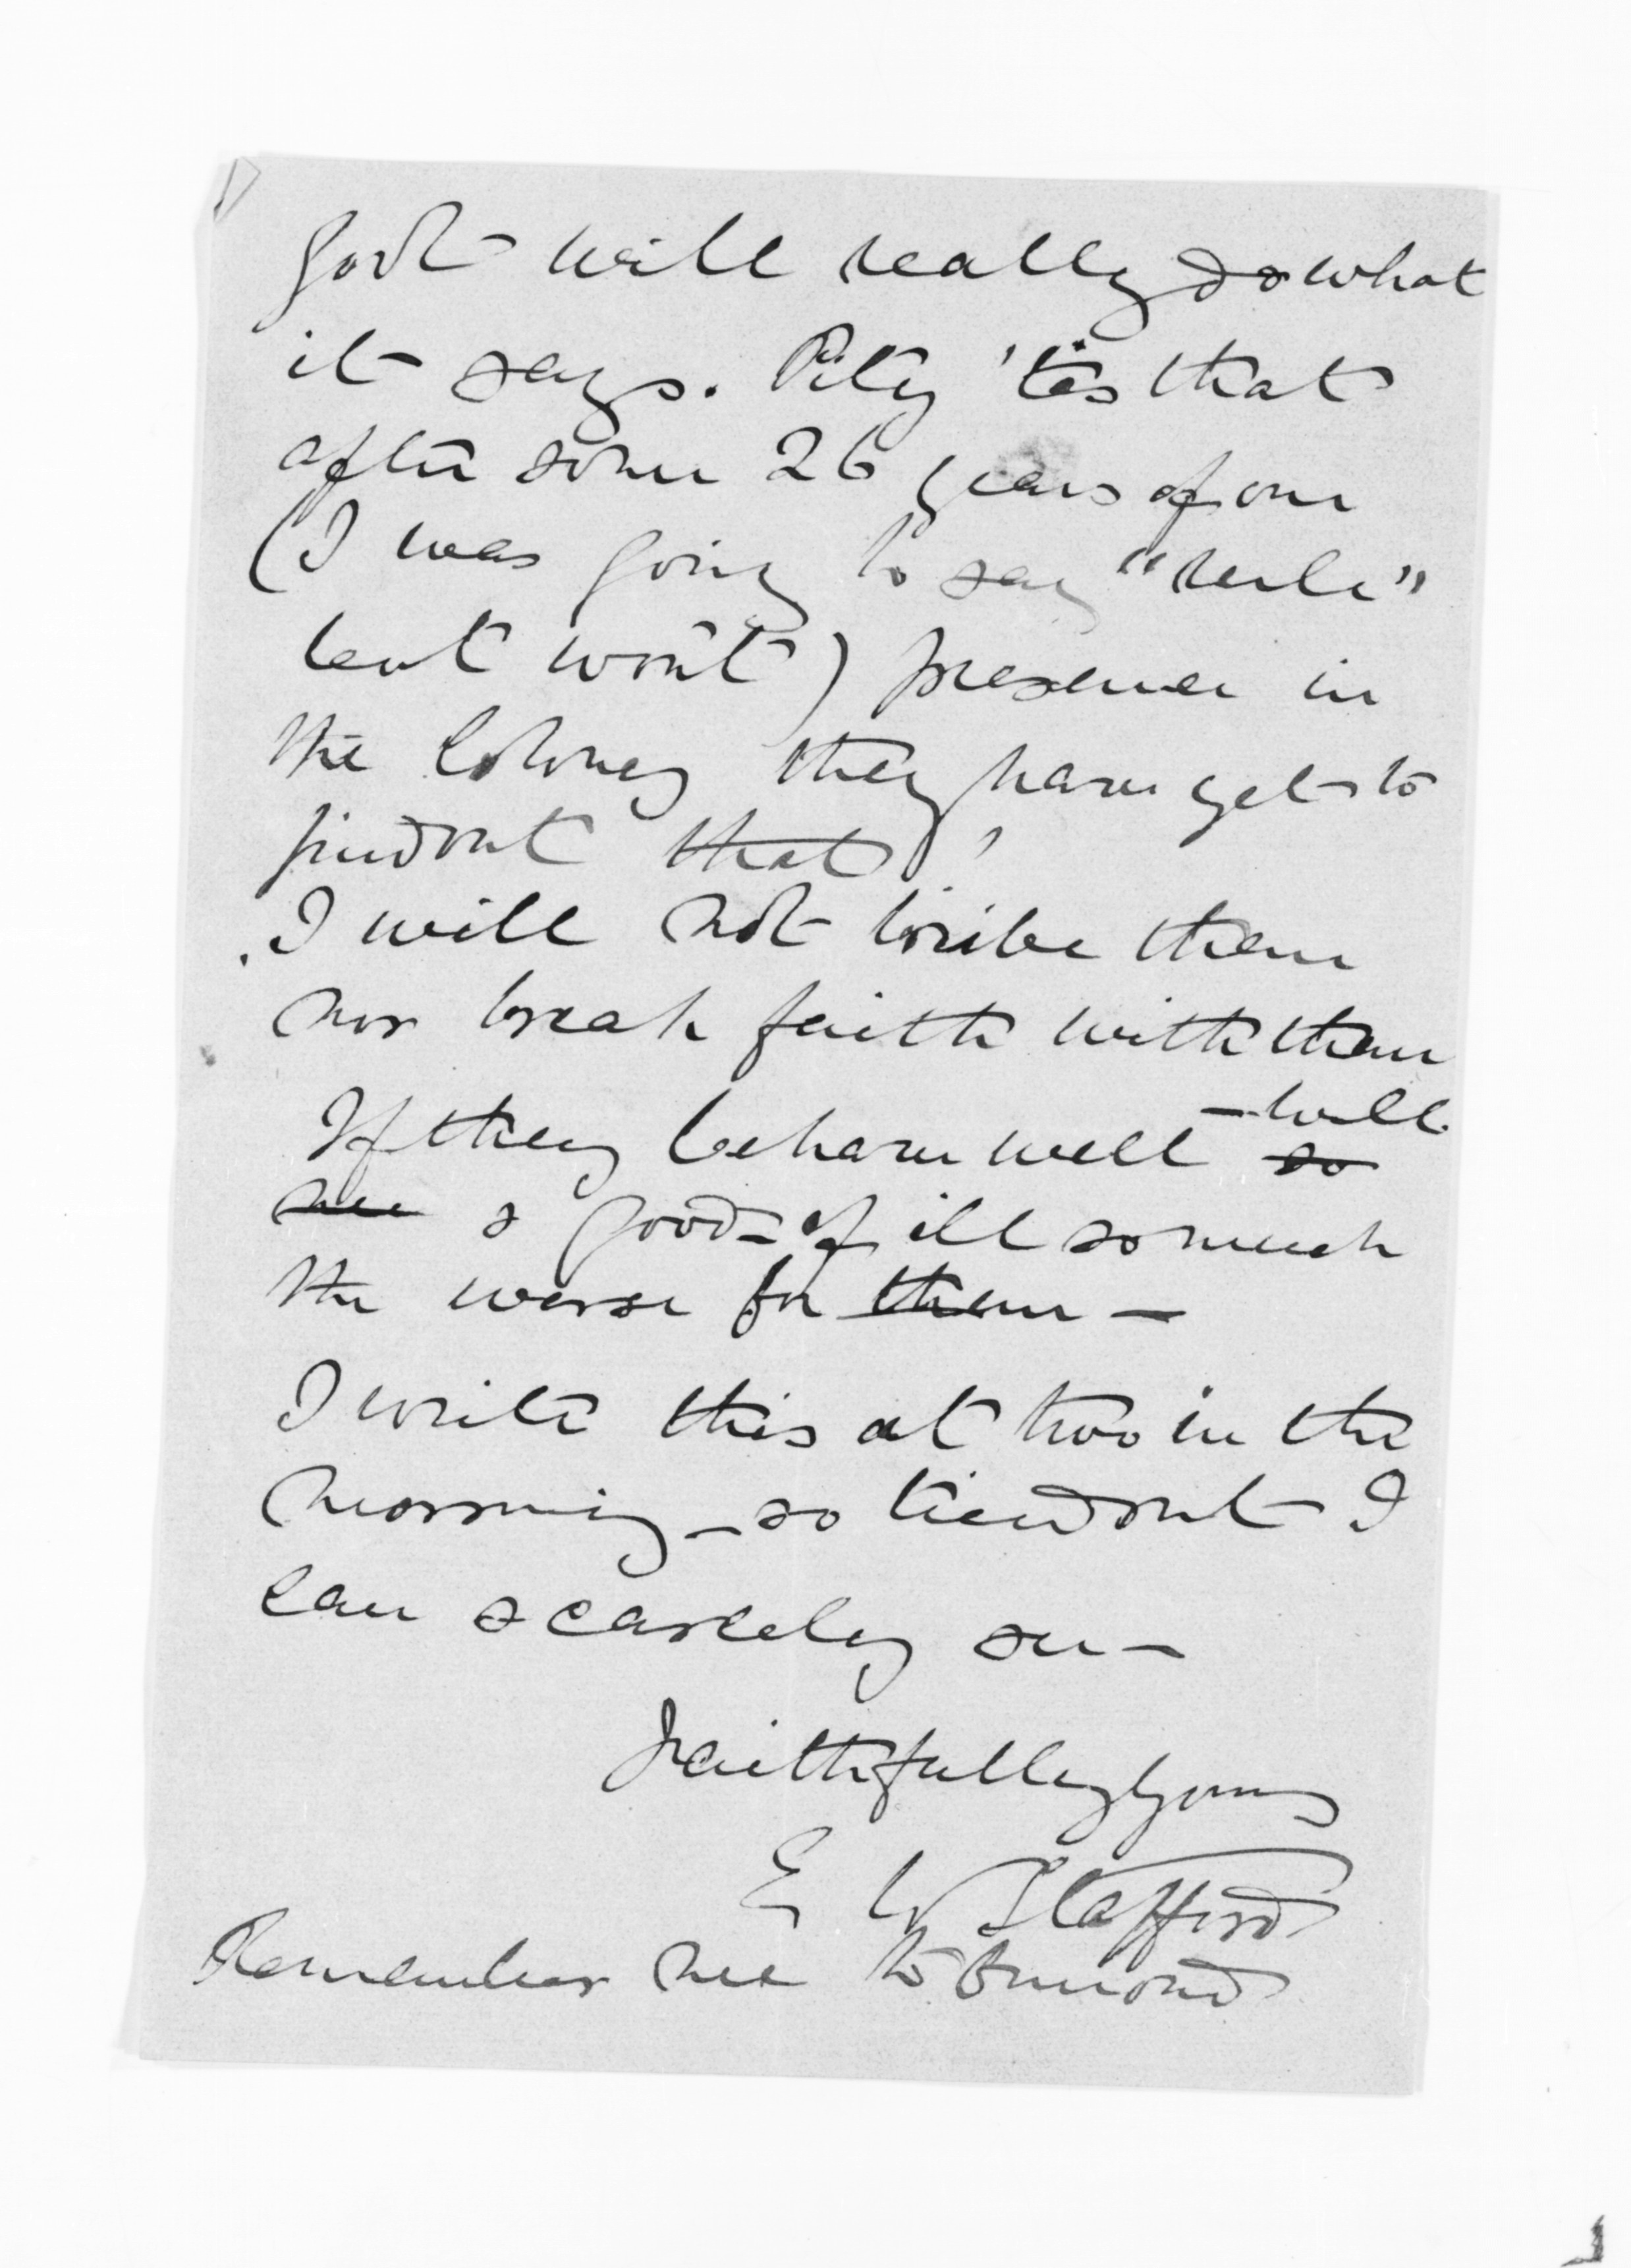 Govt will really do what
it says. Pity 'tis that
after some 26 years of our
(I was going to say "rule"
but won't) presence in
the Colony they have yet to
find out that!
I will not bribe them
nor break faith with them
If they behave well - well
so
me & good - if ill so much
the worse for them -
I write this at two in the
morning - so tired out I
can scarcely see -
Faithfully yours
E W Stafford
Remember me to Ormond